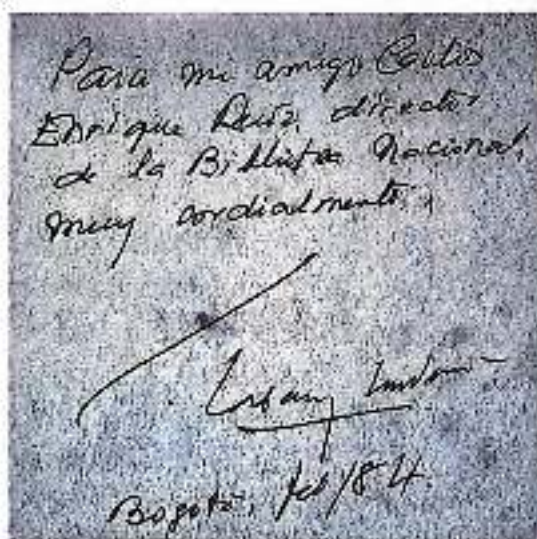 Para mi amigo Carlos
Enrique Ruiz, director
de la Biblioteca Nacional,
muy cordialmente,
Bogotá, feb/84